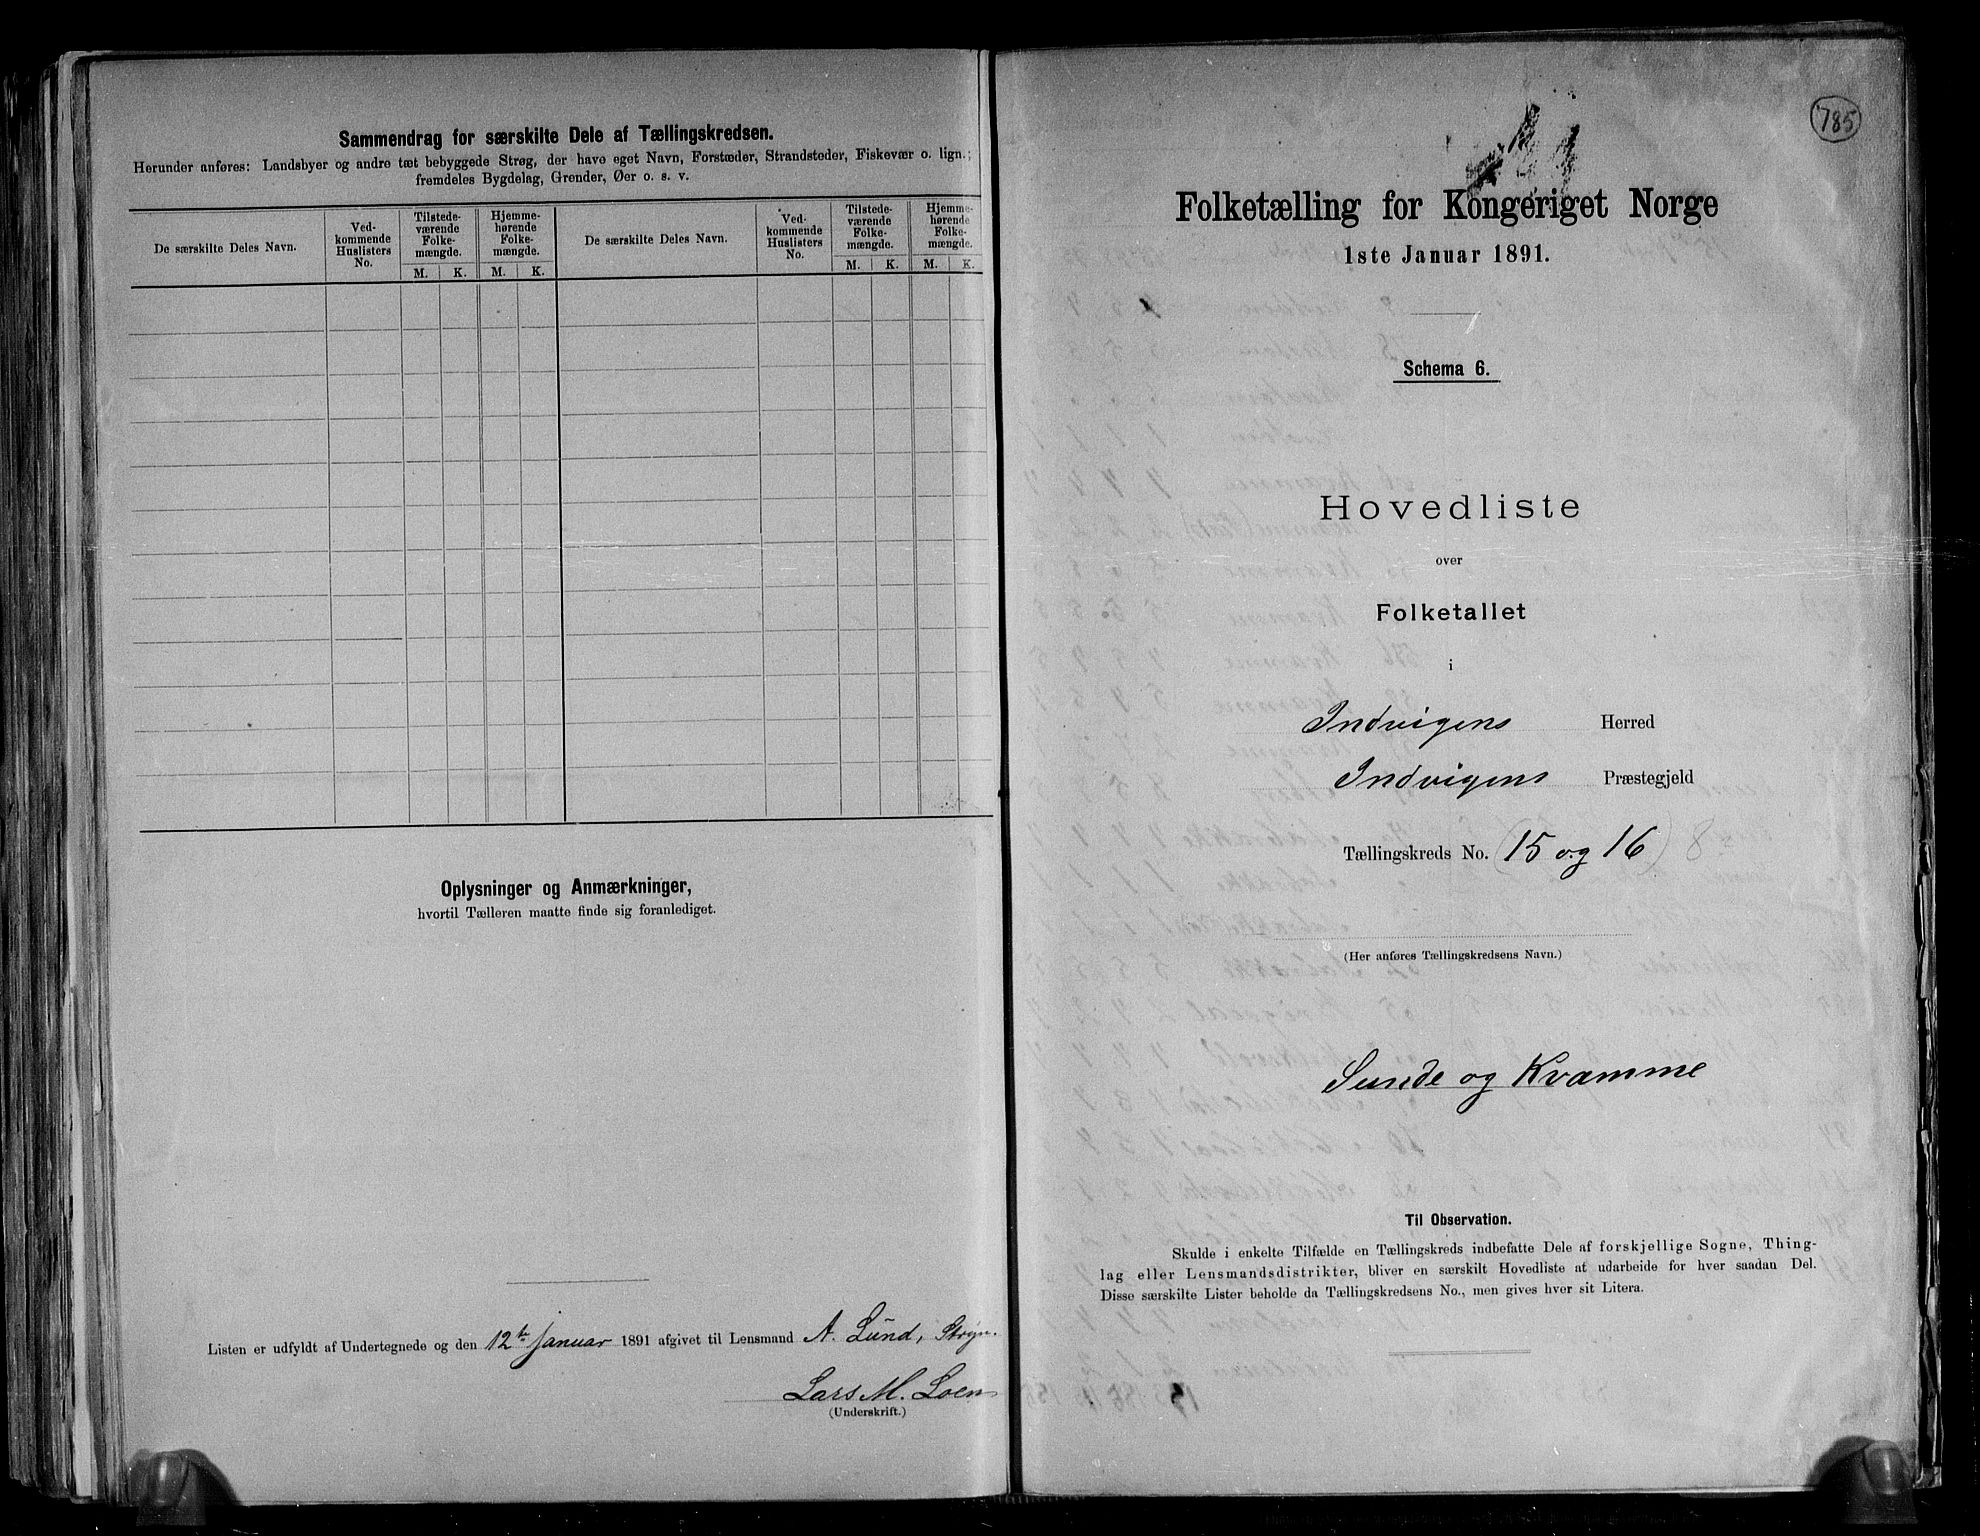 Sammendrag for særskilte Dele af Tællingskredsen.
Herunder anføres: Landsbyer og andre tæt bebyggede Strøg, der have eget Navn, Forstæder, Strandsteder, Fiskevær o. lign.;
fremdeles Bygdelag, Grender, Øer o. s. v.
De særskilte Deles Navn.
Ved-
kommende
Huslisters
No.
Tilstede-
værende
Folke-
mængde.
M. K.
Hjemme-
hørende
Folke-
mængde.
M. K.
De særskilte Deles Navn.
Ved-
kommende
Huslisters
No.
Tilstede-
værende
Folke-
mængde.
M. K.
Hjemme-
hørende
Folke-
mængde.
M. K.
Oplysninger og Anmærkninger,
hvortil Tælleren maatte finde sig foranlediget.
Listen er udfyldt af Undertegnede og den 12te Januar 1891 afgivet til Lensmand A. Lund, Stryn.
Lars M. Loen
(Underskrift.)
785
Folketælling for Kongeriget Norge
1ste Januar 1891.
Schema 6.
Hovedliste
over
Folketallet
i
Indvigens Herred
Indvigens Præstegjeld
Tællingskreds No. (15 og 16) 8
(Her anføres Tællingskredsens Navn.)
Sunde og Kvamme
Til Observation.
Skulde i enkelte Tilfælde en Tællingskreds indbefatte Dele af forskjellige Sogne, Thing-
lag eller Lensmandsdistrikter, bliver en særskilt Hovedliste at udarbeide for hver saadan Del.
Disse særskilte Lister beholde da Tællingskredsens No., men gives hver sit Litera.